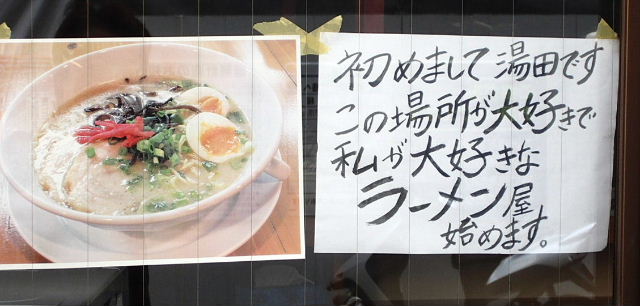 初めまして湯田です
この場所が大好きで
私が大好きな
ラーメン屋
始めます。